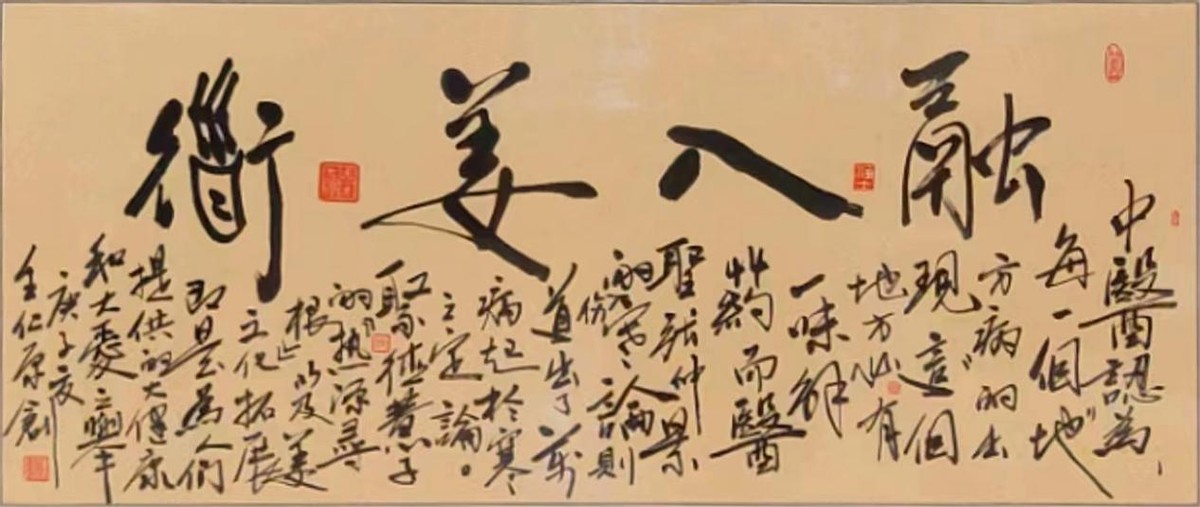 融入姜衜
中醫認為，
每一個“地
方”病的出
現，這個
地方必有
一味解
葯而醫
聖張仲景
的寒論則
傷
道出了萬
病起於寒
之定論。
的“热源尋
根”以及姜
文化拓展
即是為人們
提供的大健康
和大愛之舉
庚子夏
仁原創